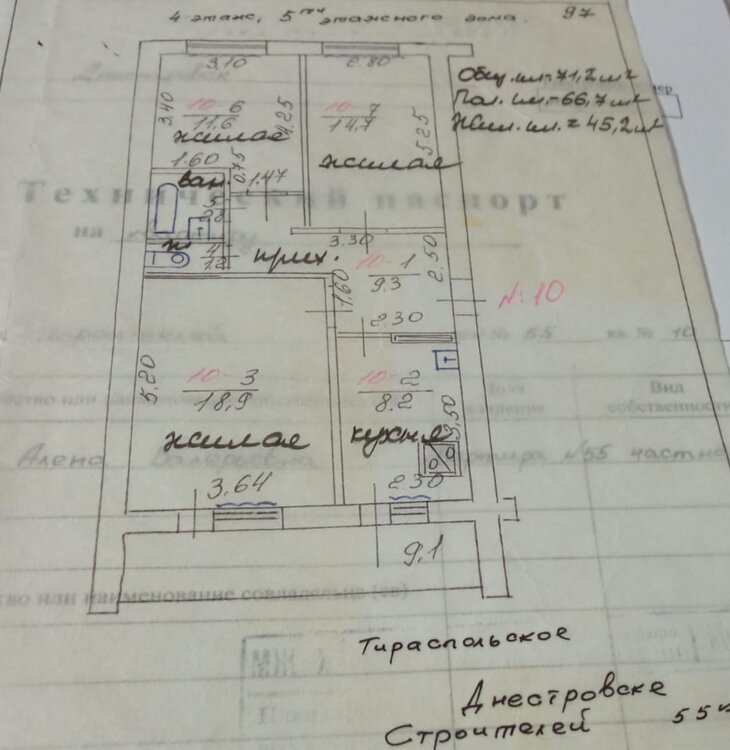 4 этаж, 5ти этажного дома.
97
Общ. пл=71,2 м²
Пол. пл.=66,7 м²
Жил. пл.=45,2 м²
3.10
2.80
3.40
10-6
11.6
жилая
4.25
10-7
14.7
жилая
5.25
1.60
0.75
1.47
ван.
5
2.8
Т
Технический паспорт
на квартиру
ж
4
1.2
прих.
3.30
10-1
9.3
2.50
1.60
2.30
N: 10
№ 55 кв. № 10
Т
10-3
18,9
жилая
5.20
10-2
8.2
кухня
3,50
Вид
собственности
Алена Валерьевна
квартира №55 частна
3.64
2.30
9.1
тво или наименование совладельца (ев)
Тираспольское
МЖ
Днестровске
Строителей 55